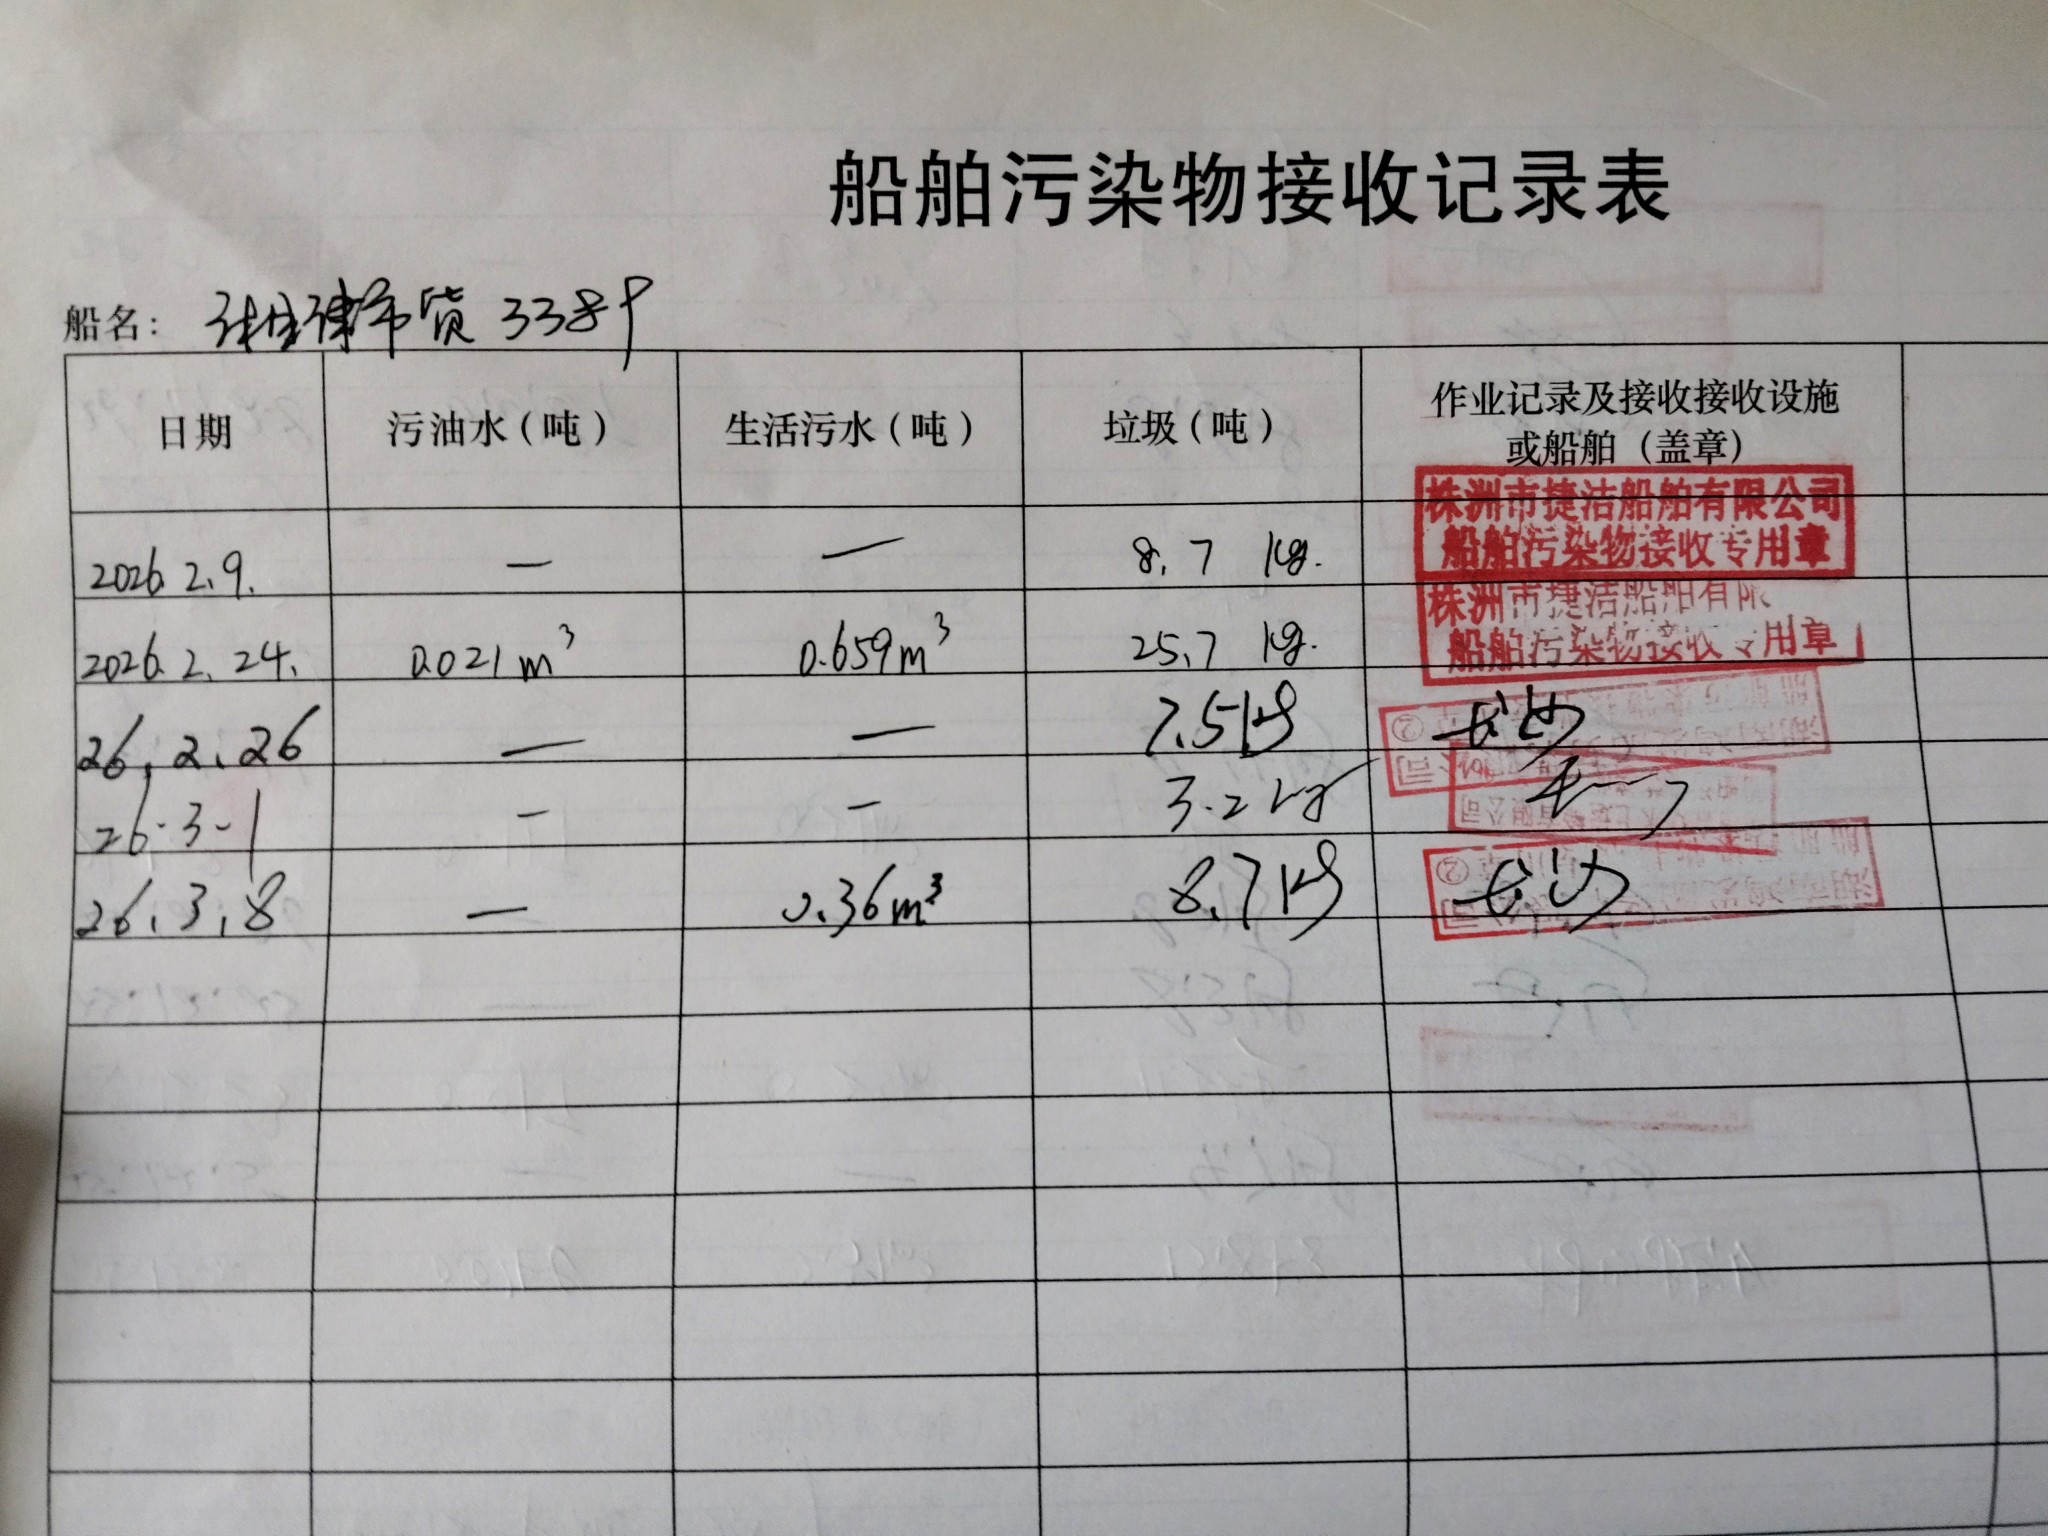 船舶污染物接收记录表
船名： 湘津市货 3389
日期 污油水（吨） 生活污水（吨） 垃圾（吨） 作业记录及接收接收设施或船舶（盖章）
2026.2.9. — — 8.7 kg. 株洲市捷洁船舶有限公司
船舶污染物接收专用章
2026.2.24. 0.021m³ 0.659m³ 25.7 kg. 株洲市捷洁船舶有限
船舶污染物接收专用章
26.2.26 — — 7.5kg 长沙 ②
26-3-1 - - 3.2kg
26.3.8 — 0.36m³ 8.7kg 长沙 ②